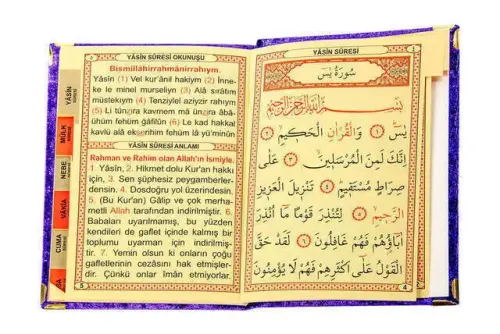 YÂSÎN SÛRESİ OKUNUŞU
Bismillâhirrahmânirrahıym.
Yâsîn (1) Vel kur'ânil hakiym (2) İnne-
ke le minel murseliyn (3) Alâ sıratim
müstekıym (4) Tenziylel aziyzir rahiym
(5) Li tünzira kavmem mâ ünzira âbâ-
ühüm fehüm ğâfilûn (6) Le kad hakkal
kavlü alâ ekserihim fehüm lâ yü'minûn
YÂSÎN SÛRESİ ANLAMI
Rahman ve Rahim olan Allah'ın İsmiyle.
1. Yâsîn. 2. Hikmet dolu Kur'an hakkı
için, 3. Sen şüphesiz peygamberler-
densin. 4. Dosdoğru yol üzerindesin.
5. (Bu Kur'an) Gâlip ve çok merha-
metli Allah tarafından indirilmiştir. 6.
Babaları uyarılmamış, bu yüzden
kendileri de gaflet içinde kalmış bir
toplumu uyarman için indirilmiş-
tir. 7. Yemin olsun ki onların çoğu
gafletlerinin cezasını hak etmişler-
dir. Çünkü onlar iman etmiyorlar.
5
YÂSÎN
MÜLK
NEBE
VÂKIA
CUMA
YÂSÎN SÛRESİ
سُورَةُ يٰسٓ
بِسْمِ اللّٰهِ الرَّحْمٰنِ الرَّحِيمِ
يٰسٓ ﴿١﴾ وَالْقُرْاٰنِ الْحَكِيمِ ﴿٢﴾
اِنَّكَ لَمِنَ الْمُرْسَلِينَ ﴿٣﴾ عَلٰى
صِرَاطٍ مُسْتَقِيمٍ ﴿٤﴾ تَنْزِيلَ الْعَزِيزِ
الرَّحِيمِ ﴿٥﴾ لِتُنْذِرَ قَوْمًا مَٓا اُنْذِرَ
اٰبَٓاؤُ۬هُمْ فَهُمْ غَافِلُونَ ﴿٦﴾ لَقَدْ حَقَّ
الْقَوْلُ عَلٰٓى اَكْثَرِهِمْ فَهُمْ لَا يُؤْمِنُونَ
4